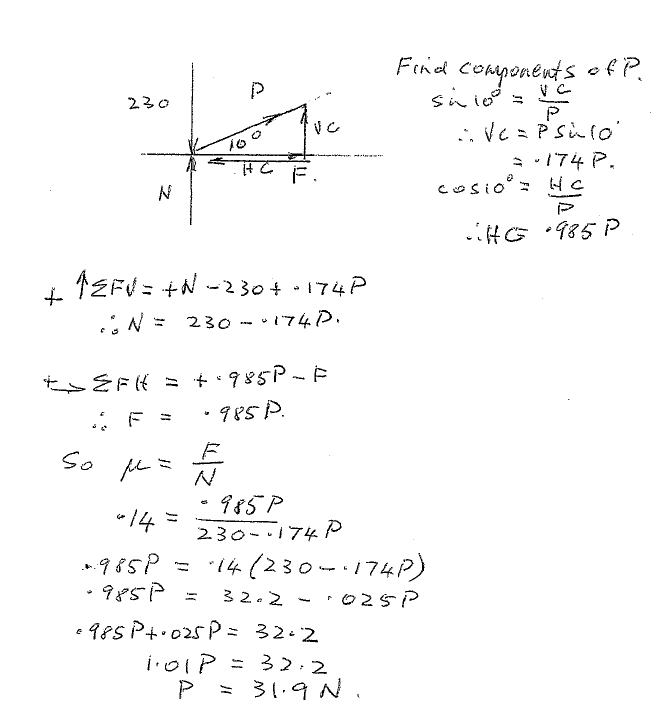 Find components of P.
230
P
sin 10° = VC/P
VC
10°
∴ VC = P sin 10°
= .174 P.
HC
F.
N
cos 10° = HC/P
∴ HC = .985 P
+ ↑ΣFV = +N - 230 + .174P
∴ N = 230 - .174P.
+→ ΣFH = + .985P - F
∴ F = .985 P.
So μ = F/N
.14 = .985 P / 230 - .174 P
.985P = .14 (230 - .174P)
.985P = 32.2 - .025P
.985P + .025P = 32.2
1.01P = 32.2
P = 31.9 N.